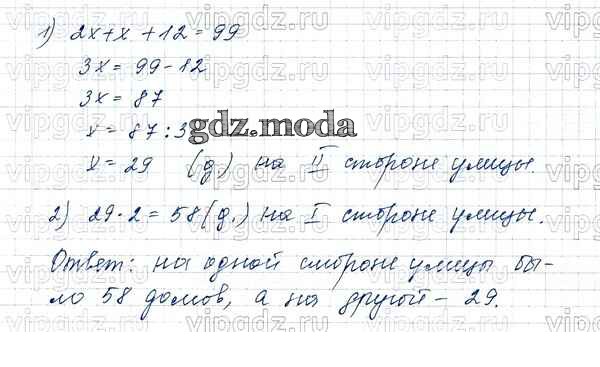 1) 2x+x+12=99
3x = 99-12
3x = 87
x = 87 : 3
gdz.moda
x = 29 (д.) на II стороне улицы.
2) 29·2=58(д.) на I стороне улицы.
Ответ: на одной стороне улицы бы-
ло 58 домов, а на другой - 29.
vipgdz.ru vipgdz.ru vipgdz.ru vipgdz.ru